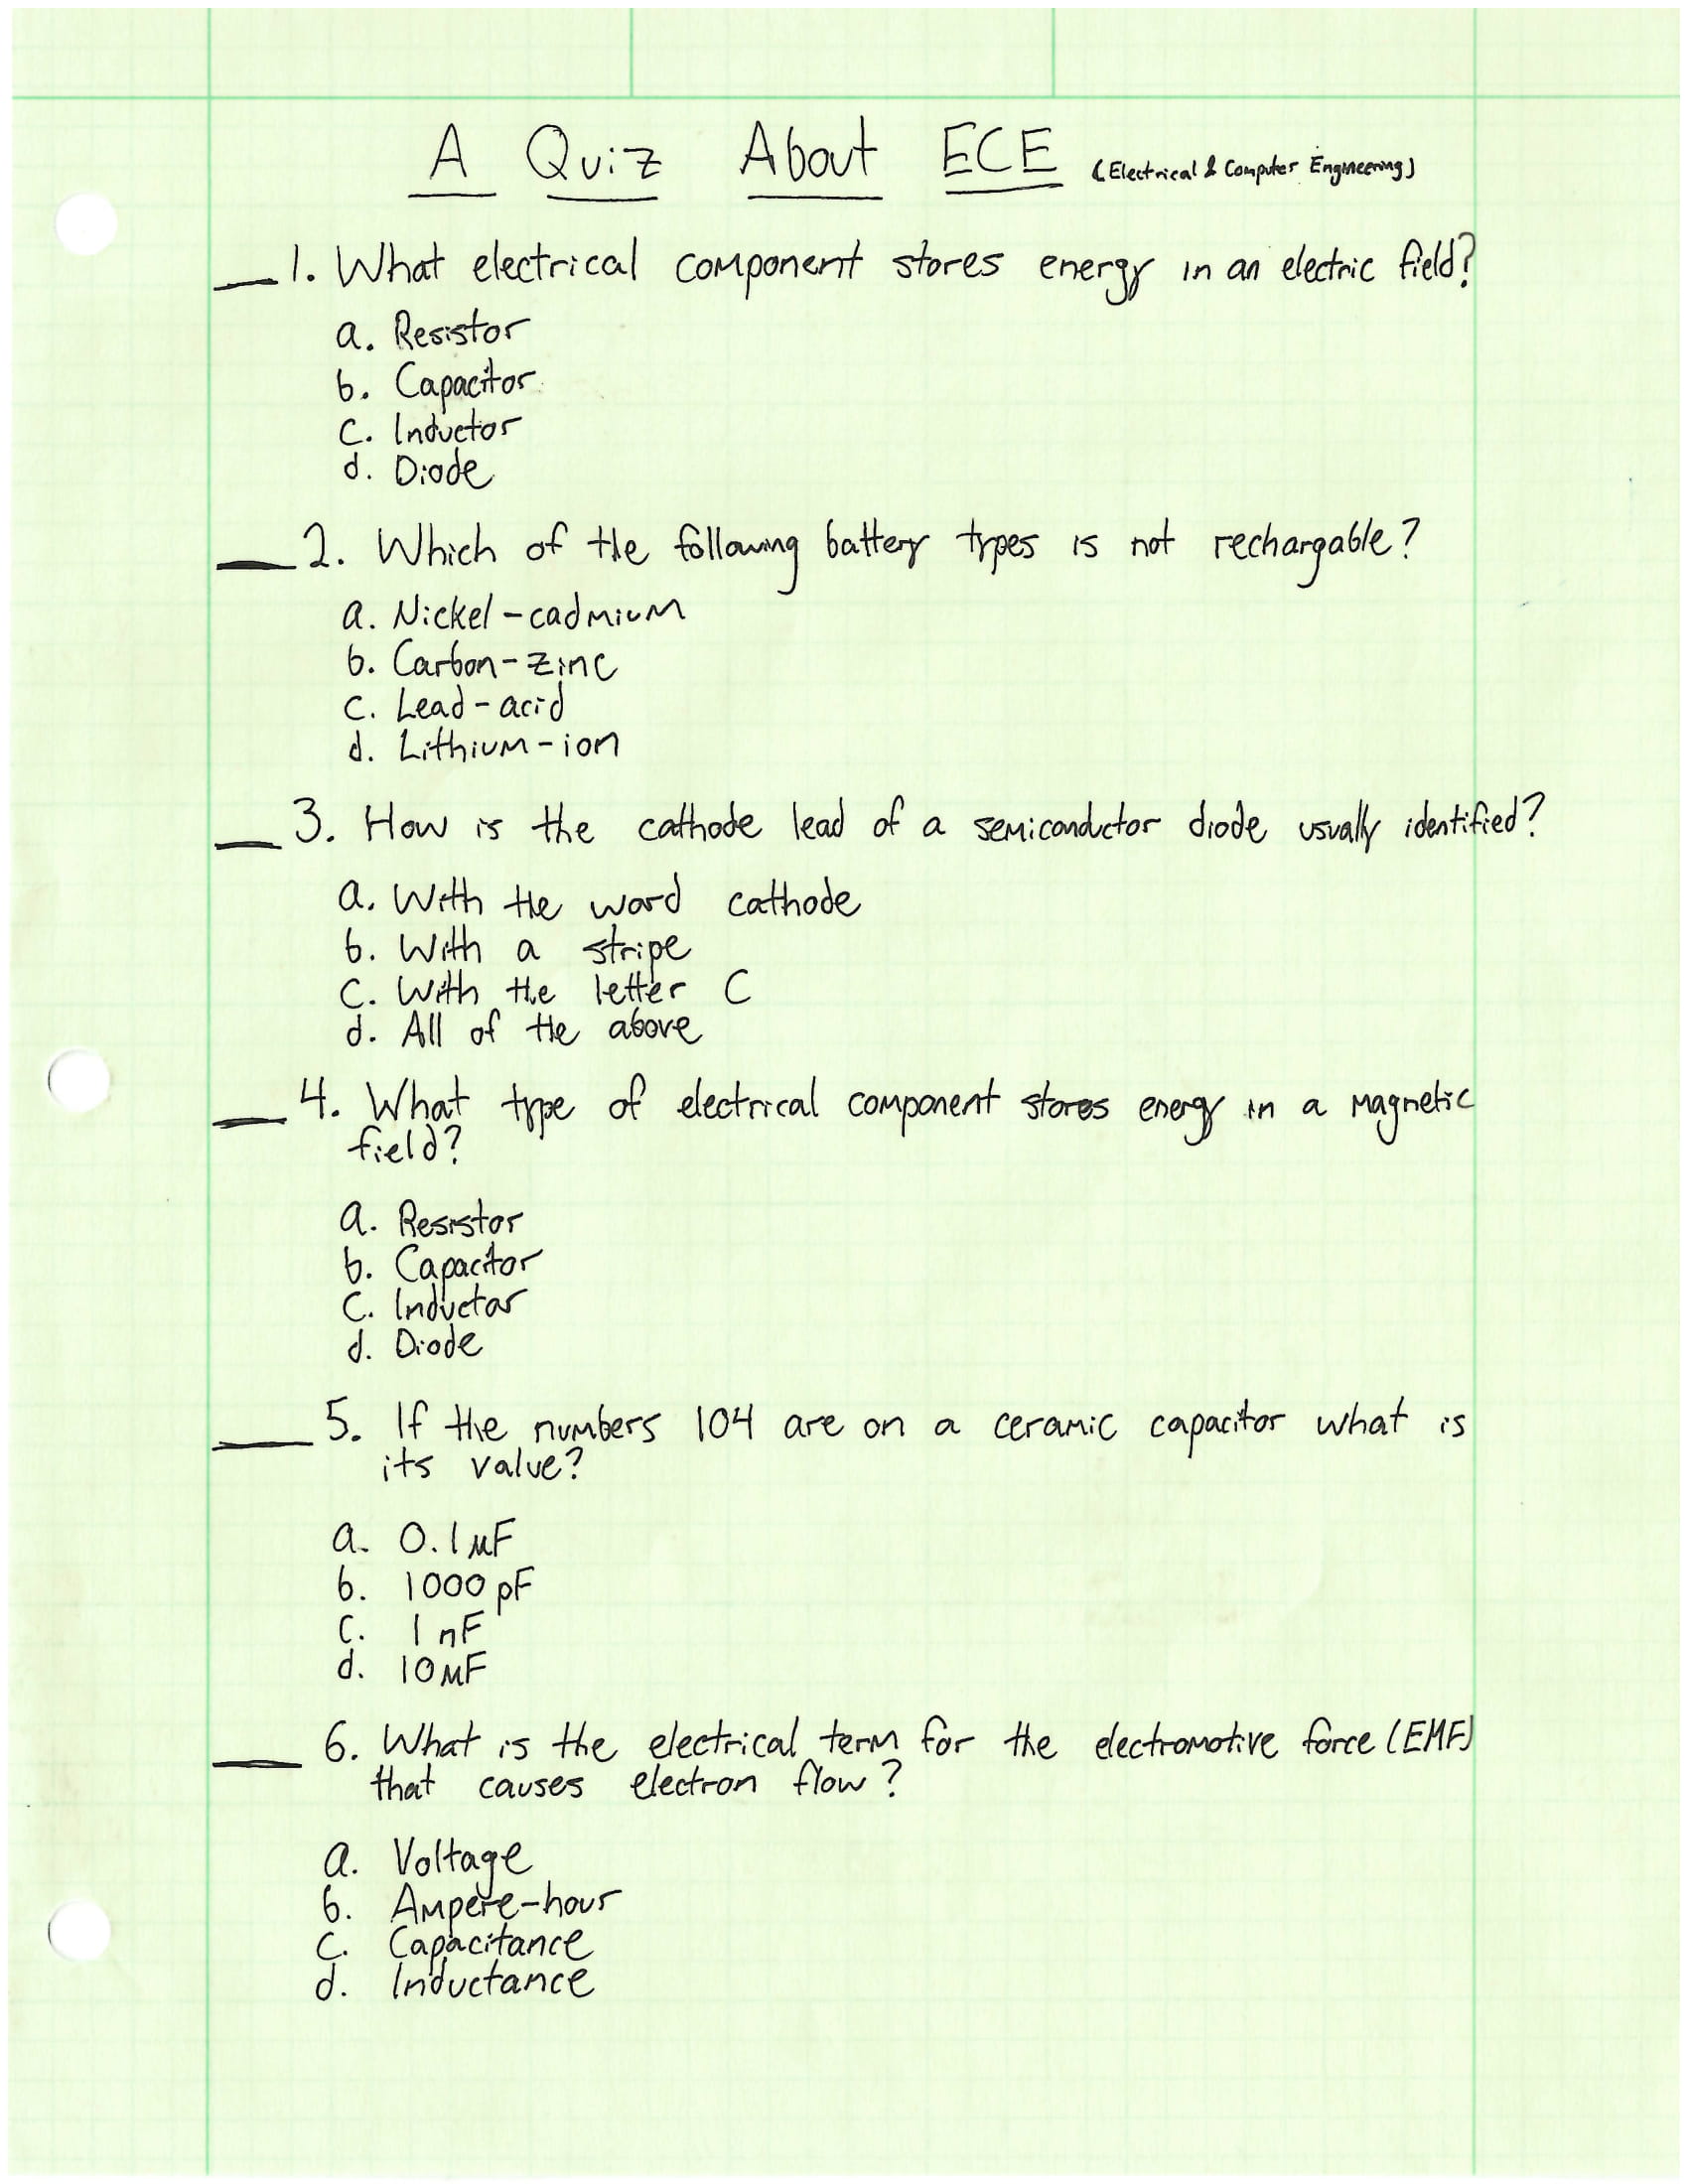 A Quiz About ECE (Electrical & Computer Engineering)
__1. What electrical component stores energy in an electric field?
a. Resistor
b. Capacitor
c. Inductor
d. Diode
__2. Which of the following battery types is not rechargable?
a. Nickel-cadmium
b. Carbon-zinc
c. Lead-acid
d. Lithium-ion
__3. How is the cathode lead of a semiconductor diode usually identified?
a. With the word cathode
b. With a stripe
c. With the letter C
d. All of the above
__4. What type of electrical component stores energy in a magnetic
field?
a. Resistor
b. Capacitor
c. Inductor
d. Diode
__5. If the numbers 104 are on a ceramic capacitor what is
its value?
a. 0.1 µF
b. 1000 pF
c. 1 nF
d. 10 µF
__6. What is the electrical term for the electromotive force (EMF)
that causes electron flow?
a. Voltage
b. Ampere-hour
c. Capacitance
d. Inductance